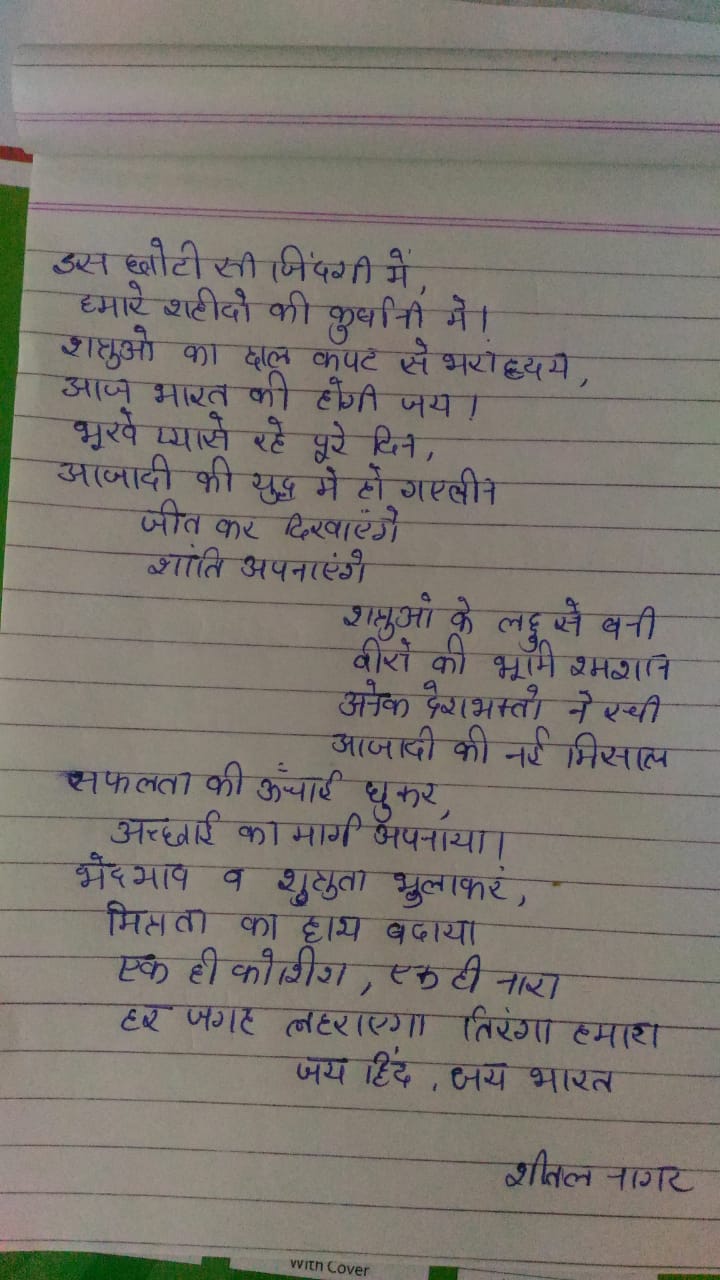 इस छोटी सी जिंदगी में,
हमारे शहीदो की कुर्बानी मे।
शत्रुओ का छल कपट से भरा ह्रदय,
आज भारत की होगी जय।
भूखे प्यासे रहे पूरे दिन,
आजादी की युद्ध मे हो गए लीन
जीत कर दिखाएंगे
शांति अपनाएंगे
शत्रुओ के लहु से बनी
वीरो की भूमि श्मशान
अनेक देशभक्तो ने रची
आजादी की नई मिसाल
सफलता की ऊँचाई छुकर,
अच्छाई का मार्ग अपनाया।
भेदभाव व शत्रुता भुलाकर,
मित्रता का हाथ बढाया
एक ही कोशिश, एक ही नारा
हर जगह लहराएगा तिरंगा हमारा
जय हिंद, जय भारत
शीतल नागर
With Cover